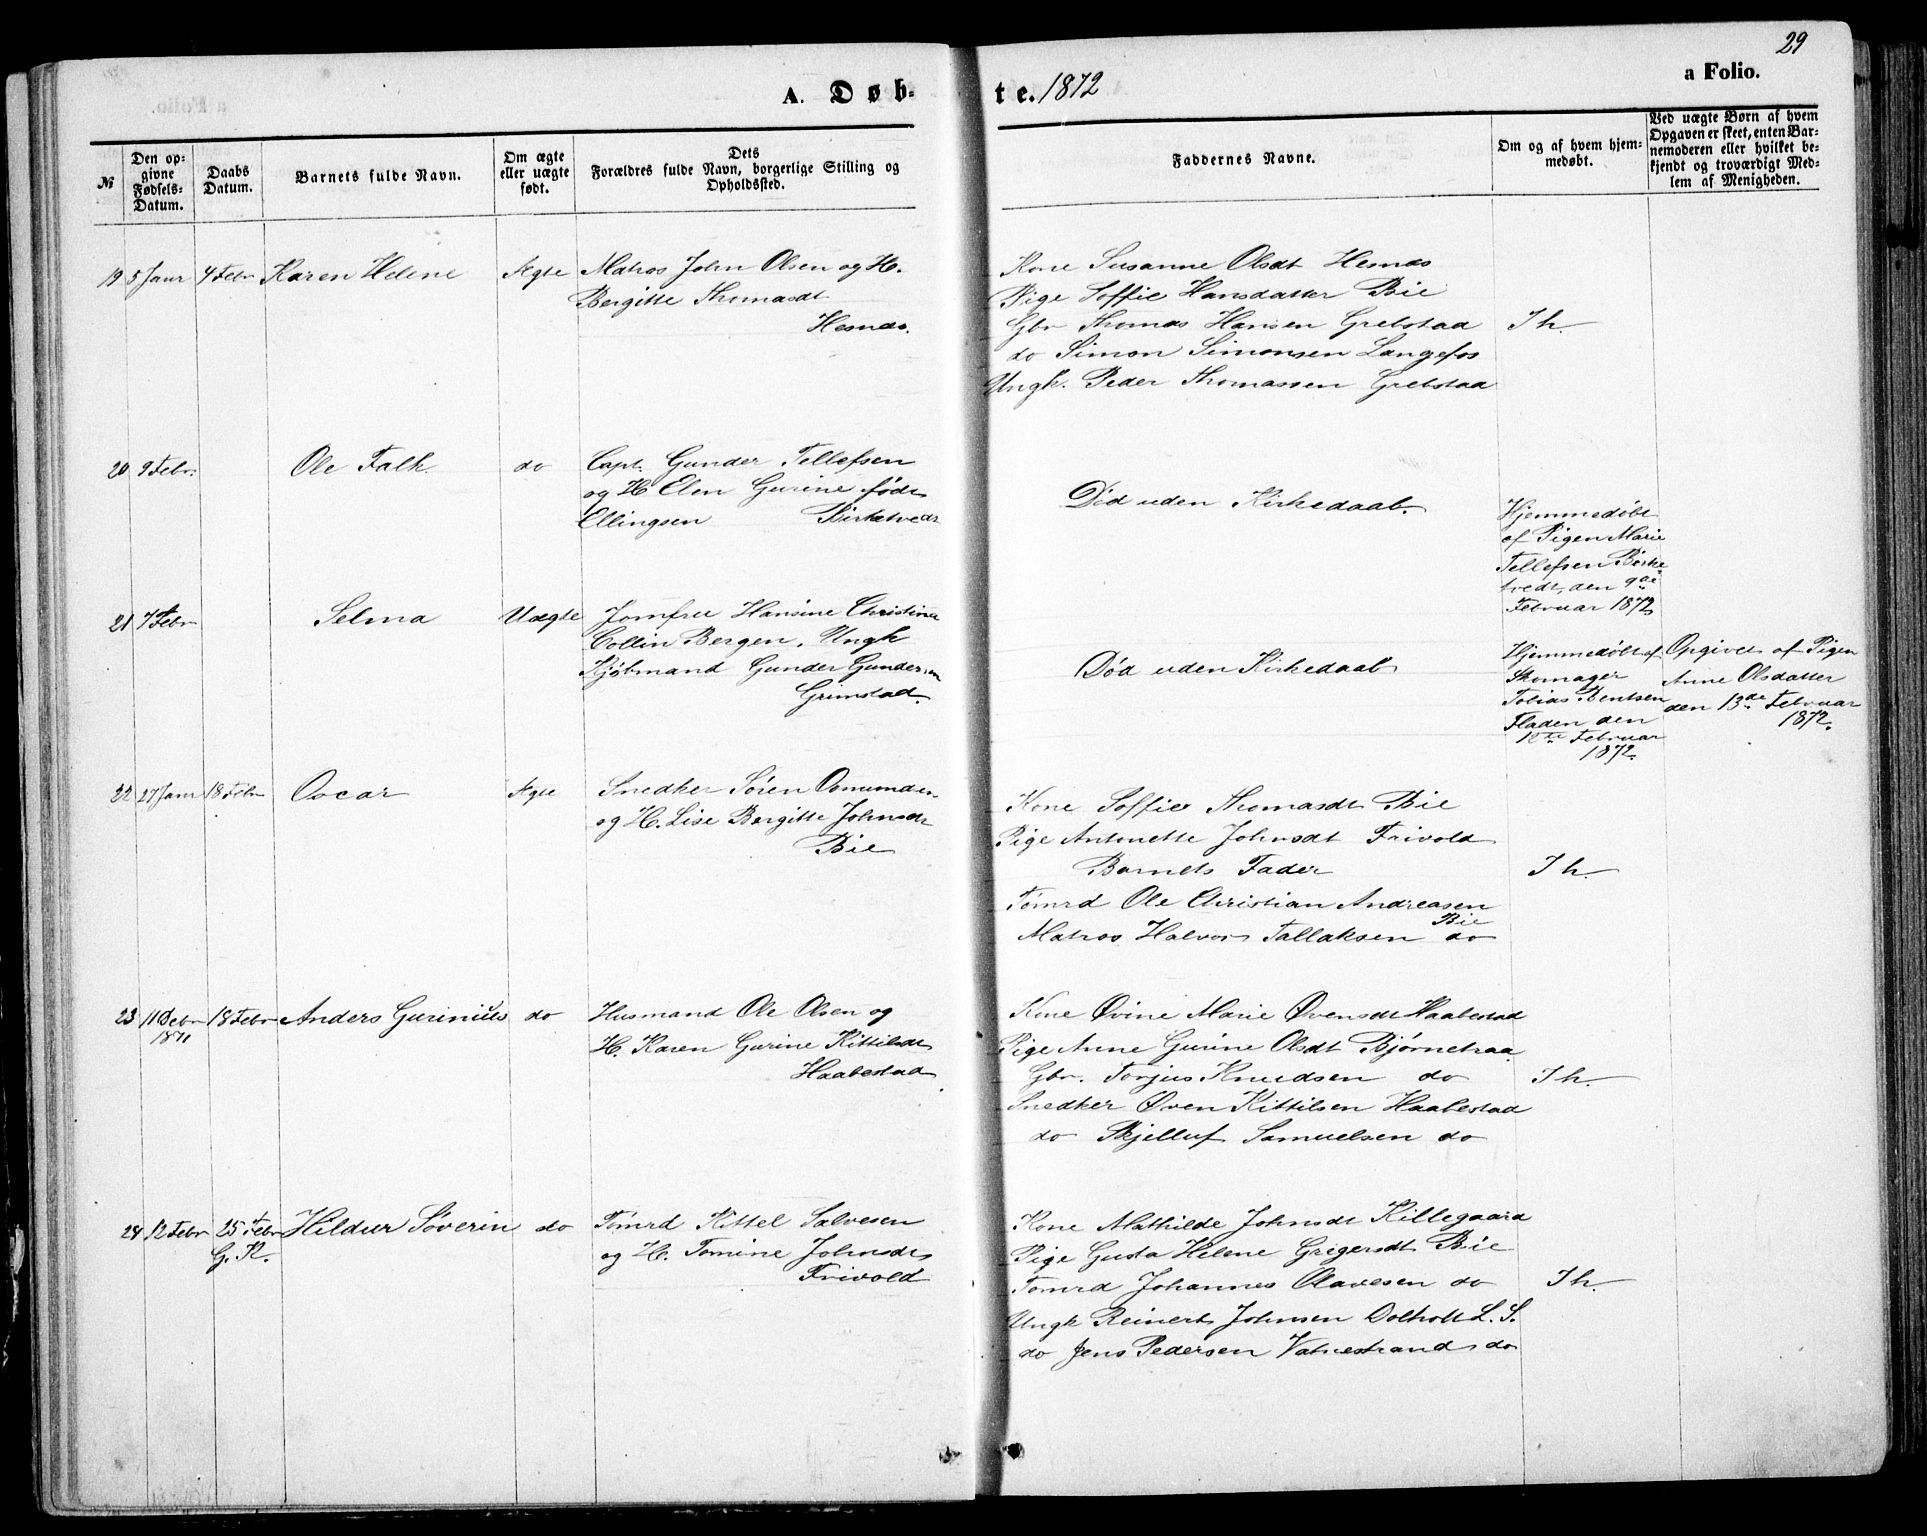 29
a Folio.
A. Døb-
te. 1872
№
Den op-
givne
Fødsels-
Datum.
Daabs
Datum.
Barnets fulde Navn.
Om ægte
eller uægte
født.
Dets
Forældres fulde Navn, borgerlige Stilling og
Opholdssted.
Faddernes Navne.
Om og af hvem hjem-
medøbt.
Ved uægte Børn af hvem
Opgaven er skeet, enten Bar-
nemoderen eller hvilket be-
kjendt og troværdigt Med-
lem af Menigheden.
19 5 Janr 4 Febr Karen Helene Ægte Matros John Olsen og H.
Bergitte Thomasdt
Hesnæs.
Kone Susanne Olsdt Hesnæs
Pige Soffie Hansdatter Bie
Gbr Thomas Hansen Grebstad Ih.
do Simon Simonsen Langefos
Ungk. Peder Thomassen Grebstad
20 9 Febr: Ole Falk do Capt. Gunder Tellefsen
og H. Elen Gurine født
Ellingsen Birketvedt
Død uden Kirkedaab.
Hjemmedøbt
af Pigen Marie
Tellefsen Birke
tvedt, den 9de
Februar 1872
21 7 Febr Selma Uægte Jomfru Hansine Christine
Collin Bergen, Ungk
Kjøbmand Gunder Gundersen
Grimstad.
Død uden Kirkedaab
Hjemmedøbt af
Skomager
Tobias Bentsen
Fladen den
12te Februar
1872.
Opgivet af Pigen
Anne Olsdatter
den 13de Februar
1872.
22 27 Janr 18 Febr Oscar Ægte Snedker Søren Osmundsen
og H. Lise Bergitte Johnsdt
Bie
Kone Soffie Thomasdt Bie
Pige Antonette Johnsdt Frivold
Barnets Fader Ih.
Tømrd Ole Christian Andreasen
Bie
Matros Halvor Tallaksen do
23 11 Debr 18 Febr Anders Gurinius do Husmand Ole Olsen og
1871
H. Karen Gurine Kittilsdt
Haabestad
Kone Øvine Marie Øvensdt Haabestad
Pige Anne Gurine Olsdt Bjørnetraa
Gbr. Torjus Knudsen do Ih.
Snedker Øven Kittilsen Haabestad
do Skjelluf Samuelsen do
24 12 Febr 25 Febr Hildur Severin do Tømrd Kittel Salvesen
G. K.
og H. Tomine Johnsdt
Frivold
Kone Mathilde Johnsdt Killegaard
Pige Gusta Helene Gregersdt Bie
Tømrd Johannes Olavesen do Ih.
Ungk Reinert Johnsen Dolholt L. S.
do Jens Pedersen Vatnestrand do